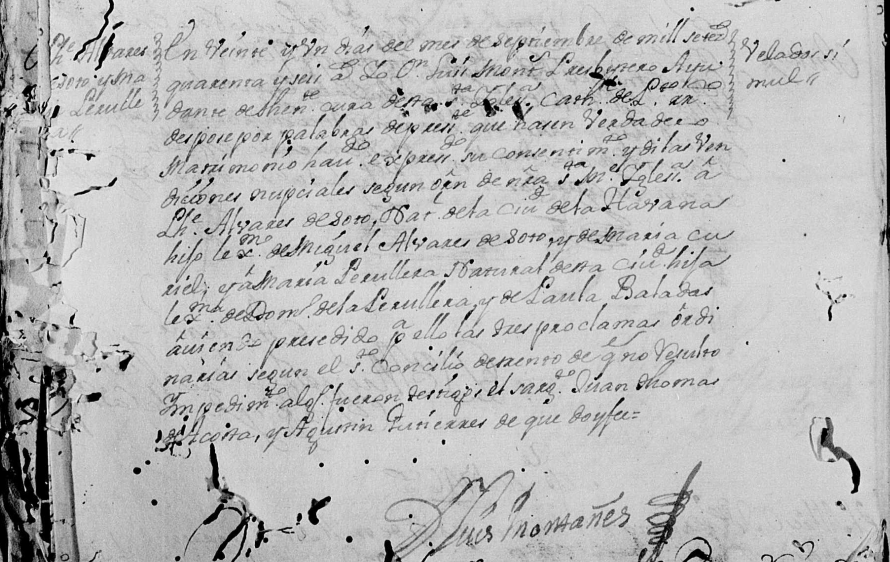 Phe. Alvares
Soto y Ma.
Perulle
ra
Velados si
mul
En Veinte y Un dias del mes de Septiembre de mill setez.
quarenta y seis as. Yo Dn. Luis Monts. Presbytero Ayu
dante de Then. cura desta sta. Yglesa. Cath. de
despose por palabras de preste. que hasen Verdadero
Matrimonio havdo. expresdo. su consentimto. y di las Ven
diciones nupciales segun orn. de nra. sta. Me. Yglesa. â
Phe. Alvares de Soto, Nat. de la Ciud. de la Havana
hijo lexmo. de Miguel Alvares de Soto, y de Maria cu
riel; y â Maria Perullera Natural desta Ciud. hija
lexma. de Domo. de la Perullera, y de Paula Baladas
âviendo presedido pa. ello las tres proclamas ôrdi
narias segun el sto. Concilio de trento de q. no Resulto
Ympedimto. algo. fueron testigs. el sargto. Juan Thomas
de Acosta, y Agustin Gutierres de que doy fee=
Luis Montañes